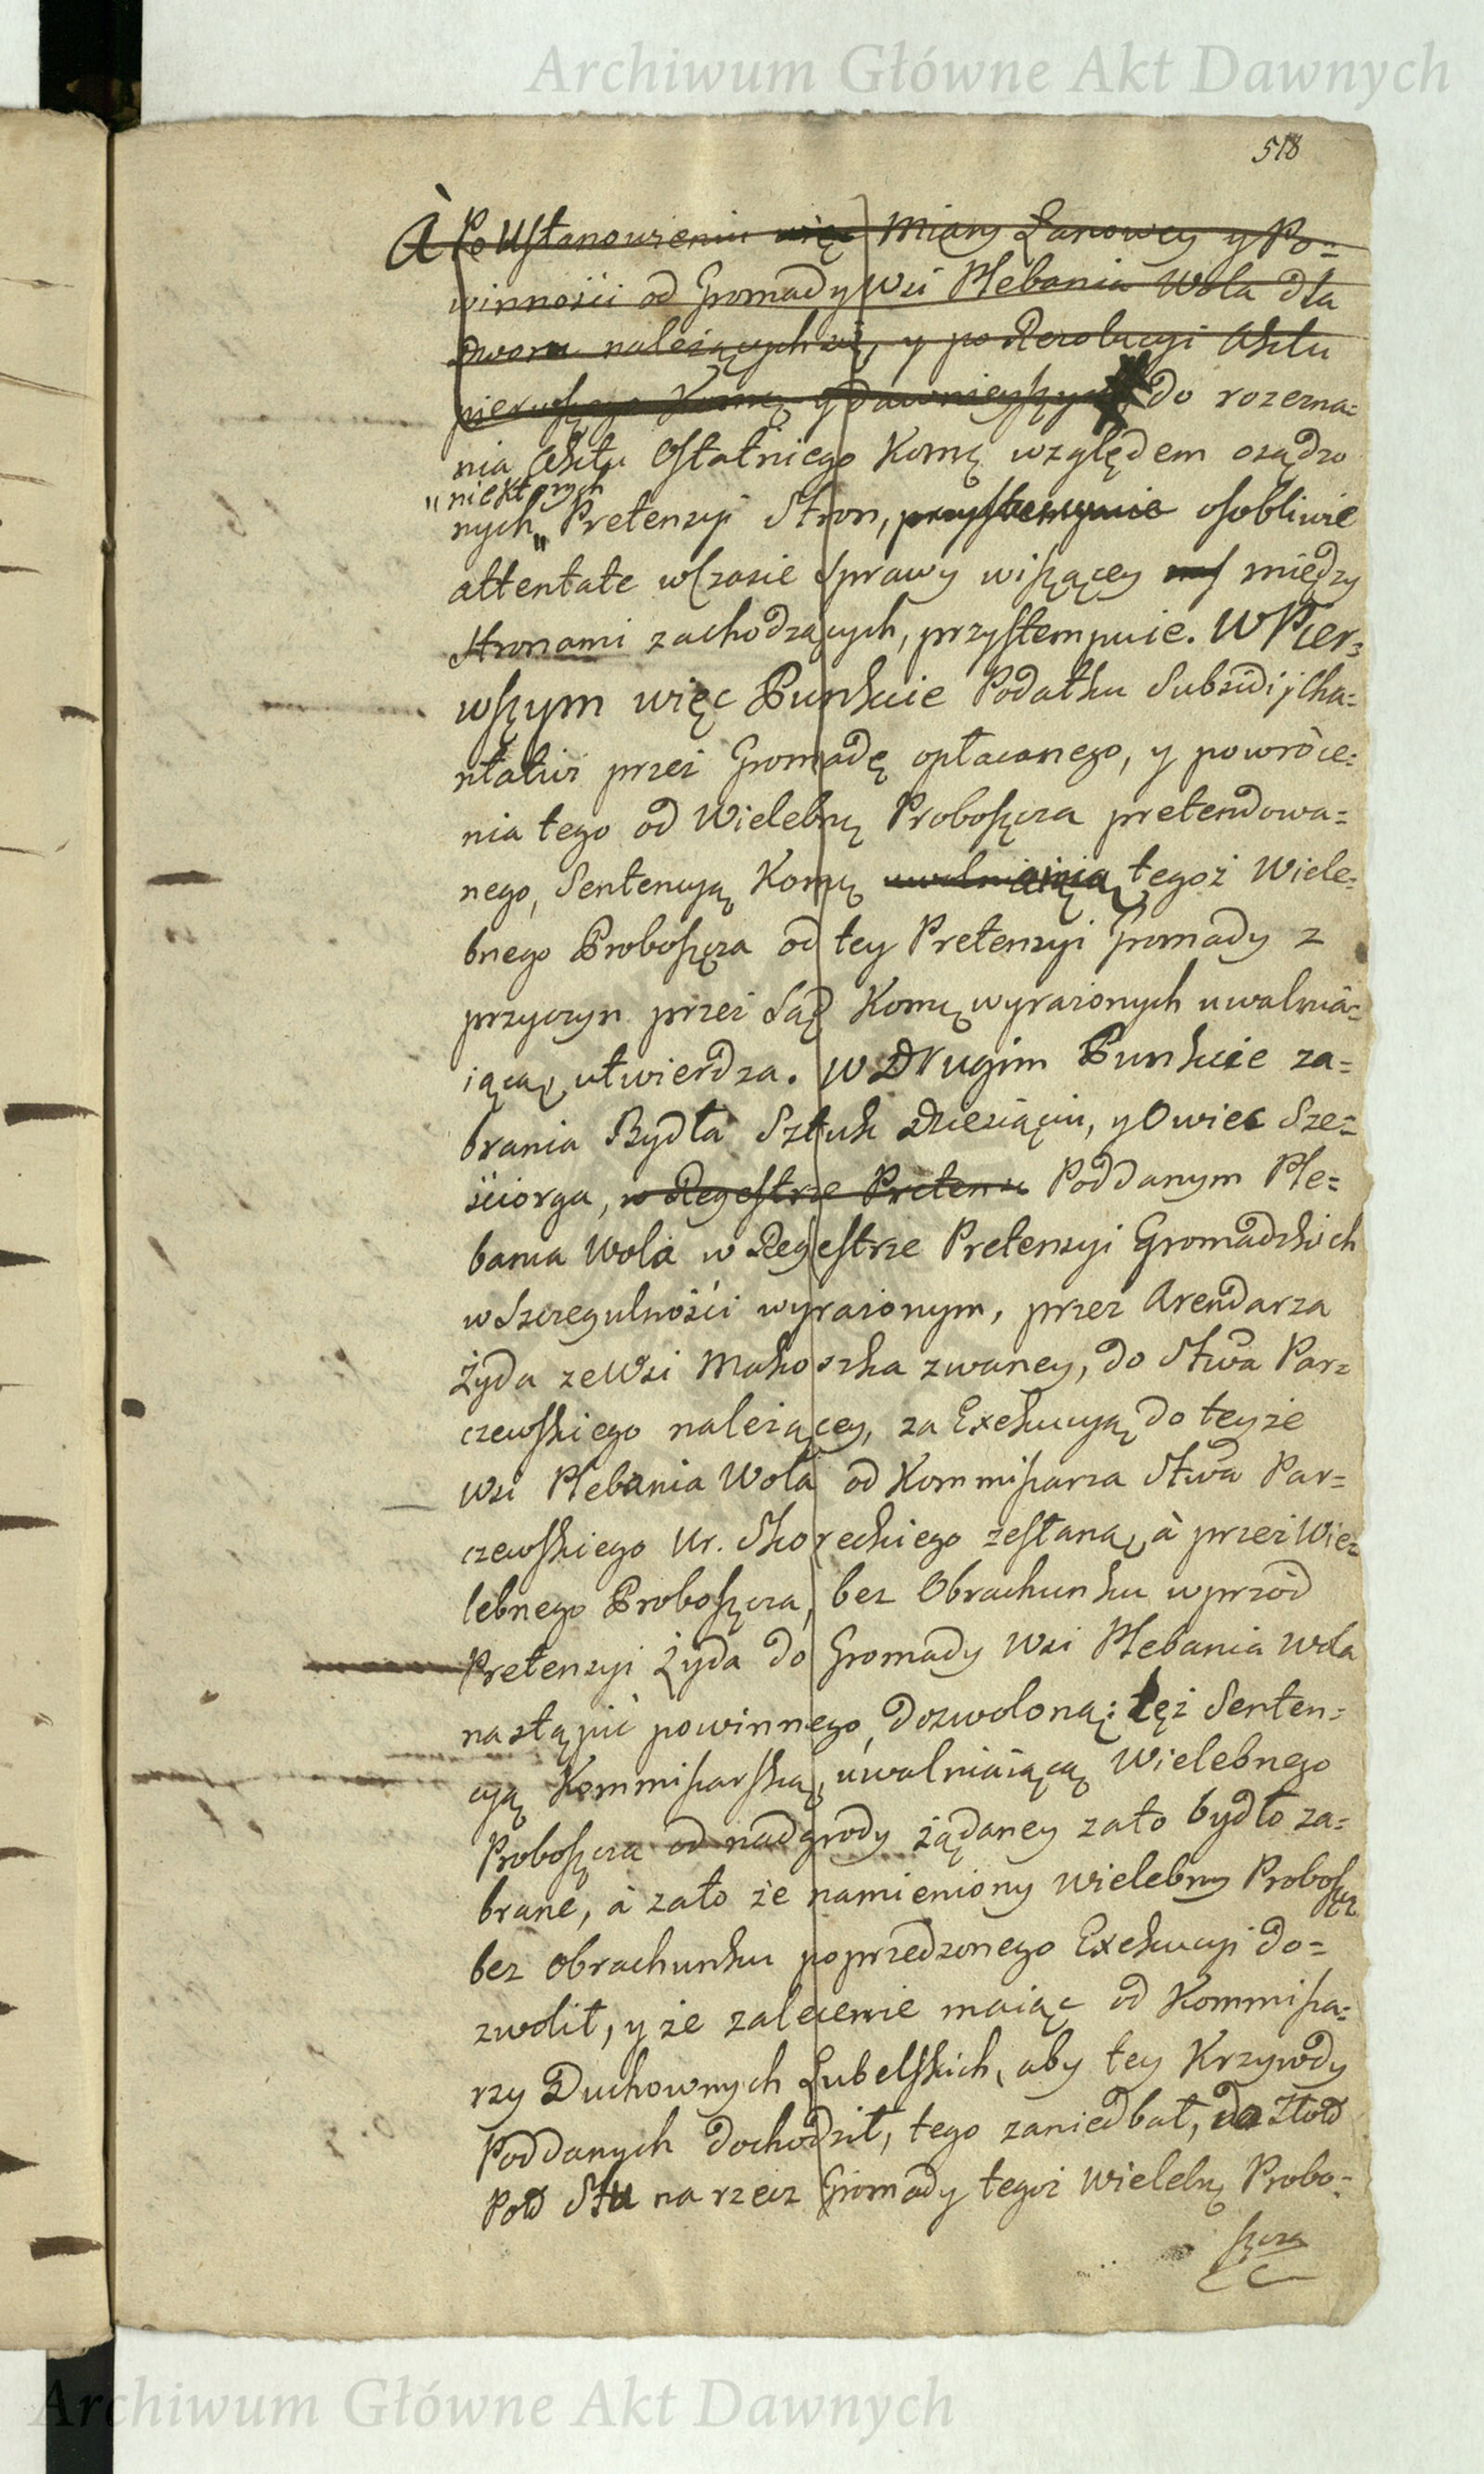 Archiwum Główne Akt Dawnych
518
à Po Ustanowieniu więc Miary Łanowey y Po=
winności od Gromady Wsi Plebania Wola dla
Dworu należących się, y po Rezolucyi Aktu
pierwszego Komĩ y dawnieyszych, do rozezna=
nia Aktu Ostatniego Komĩ względem osądzo
"niektorych
nych„ Pretensyi Stron, przystempuie osobliwie
attentatc wczasie Sprawy wiszącey między
Stronami zachodzących, przystempuie. W Pier=
wszym więc Punkcie Podatku Subsidij Cha=
ritativi przez Gromadę opłacanego, y powróce=
nia tego od Wielebnę Proboszcza pretendowa=
nego, Sentencyą Komĩ uwalniaiącą tegoż Wiele=
bnego Proboszcza od tey Pretensyi Gromady z
przyczyn przez Sąd Komĩ wyrażonych uwalnia=
iącą, utwierdza. W Drugim Punkcie za=
brania Bydła Sztuk Dziesiąciu, y Owiec Sze=
ściorga, w Regestrze Pretens Poddanym Ple=
bania Wola w Regestrze Pretensyi Gromadzkich
w Szczegulności wyrażonym, przez Arendarza
Żyda ze Wsi Makoszka zwaney, do Stwa Par=
czewskiego należącey, za Exekucyą do teyże
Wsi Plebania Wola od Kommissarza Stwa Par=
czewskiego Ur. Skoreckiego zesłaną, à przez Wie=
lebnego Proboszcza, bez Obrachunku wprzód
Pretensyi Żyda do Gromady Wsi Plebania Wola
nastąpić powinnego, dozwoloną: też Senten=
cyą Kommissarską, uwalniaiącą Wielebnego
Proboszcza od nadgrody żądaney zato bydło za=
brane, à zato że namieniony Wielebny Proboszcz
bez Obrachunku poprzedzonego Exekucyi do=
zwolił, y że zalecenie maiąc od Kommissa=
rzy Duchownych Lubelskich, aby tey Krzywdy
Poddanych dochodził, tego zaniedbał, do Złotd
Pold Stu na rzecz Gromady tegoż Wielebnę Probo=
szcza
Archiwum Główne Akt Dawnych